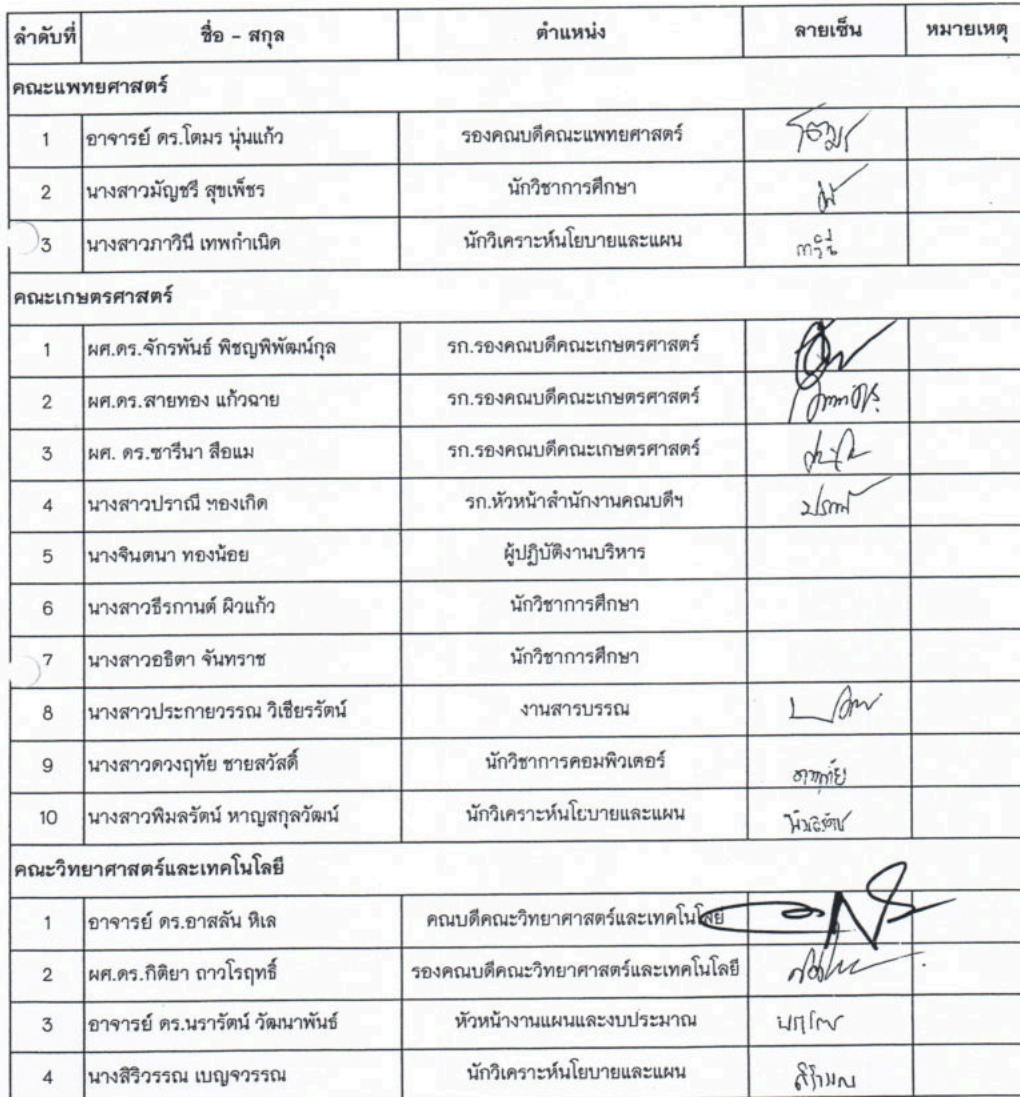 ลำดับที่ ชื่อ - สกุล ตำแหน่ง ลายเซ็น หมายเหตุ
คณะแพทยศาสตร์
1 อาจารย์ ดร.โตมร นุ่นแก้ว รองคณบดีคณะแพทยศาสตร์
2 นางสาวมัญชรี สุขเพ็ชร นักวิชาการศึกษา
3 นางสาวภาวินี เทพกำเนิด นักวิเคราะห์นโยบายและแผน ภาวินี
คณะเกษตรศาสตร์
1 ผศ.ดร.จักรพันธ์ พิชญพิพัฒน์กุล รก.รองคณบดีคณะเกษตรศาสตร์
2 ผศ.ดร.สายทอง แก้วฉาย รก.รองคณบดีคณะเกษตรศาสตร์
3 ผศ. ดร.ซารีนา สือแม รก.รองคณบดีคณะเกษตรศาสตร์
4 นางสาวปราณี ทองเกิด รก.หัวหน้าสำนักงานคณบดีฯ
5 นางจินตนา ทองน้อย ผู้ปฏิบัติงานบริหาร
6 นางสาวธีรกานต์ ผิวแก้ว นักวิชาการศึกษา
7 นางสาวอธิตา จันทราช นักวิชาการศึกษา
8 นางสาวประกายวรรณ วิเชียรรัตน์ งานสารบรรณ
9 นางสาวดวงฤทัย ชายสวัสดิ์ นักวิชาการคอมพิวเตอร์
10 นางสาวพิมลรัตน์ หาญสกุลวัฒน์ นักวิเคราะห์นโยบายและแผน
คณะวิทยาศาสตร์และเทคโนโลยี
1 อาจารย์ ดร.อาสลัน หิเล คณบดีคณะวิทยาศาสตร์และเทคโนโลยี
2 ผศ.ดร.กิติยา ถาวโรฤทธิ์ รองคณบดีคณะวิทยาศาสตร์และเทคโนโลยี
3 อาจารย์ ดร.นรารัตน์ วัฒนาพันธ์ หัวหน้างานแผนและงบประมาณ
4 นางสิริวรรณ เบญจวรรณ นักวิเคราะห์นโยบายและแผน